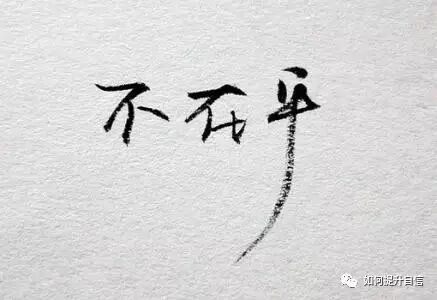 不在乎
如何提升自信